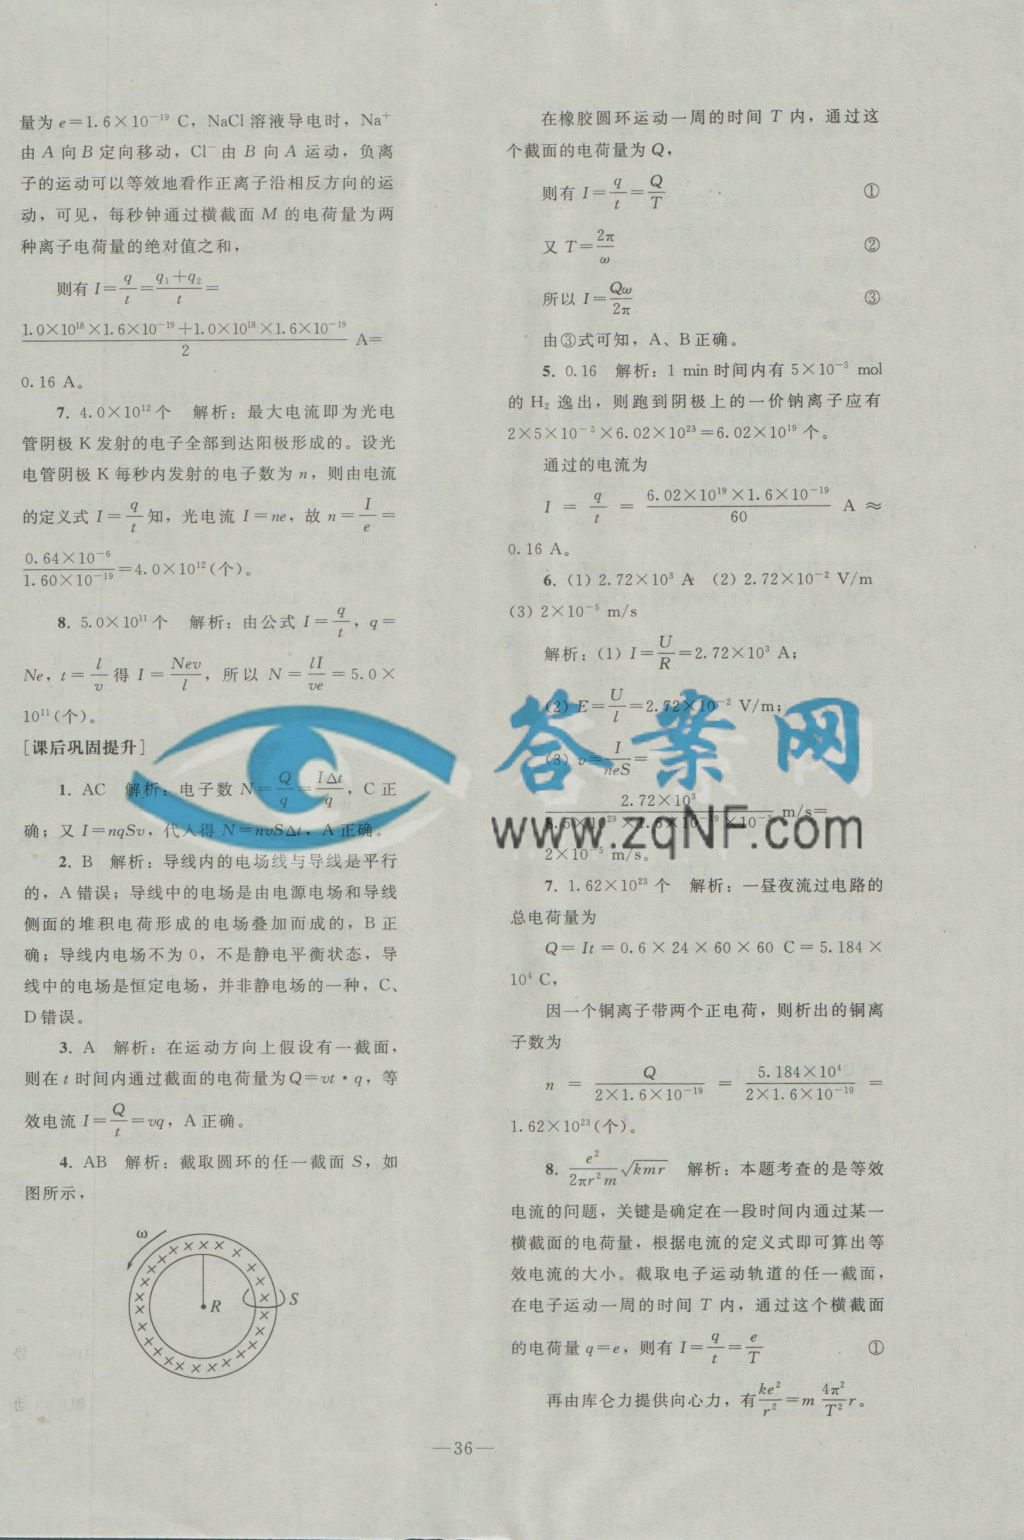 量为 e=1.6×10⁻¹⁹ C，NaCl 溶液导电时，Na⁺
由 A 向 B 定向移动，Cl⁻ 由 B 向 A 运动，负离
子的运动可以等效地看作正离子沿相反方向的运
动，可见，每秒钟通过横截面 M 的电荷量为两
种离子电荷量的绝对值之和，
则有 I=q/t=(q₁+q₂)/t=
(1.0×10¹⁸×1.6×10⁻¹⁹+1.0×10¹⁸×1.6×10⁻¹⁹)/2 A=
0.16 A。
7. 4.0×10¹²个 解析：最大电流即为光电
管阴极 K 发射的电子全部到达阳极形成的。设光
电管阴极 K 每秒内发射的电子数为 n，则由电流
的定义式 I=q/t 知，光电流 I=ne，故 n=I/e=
(0.64×10⁻⁶)/(1.60×10⁻¹⁹)=4.0×10¹²(个)。
8. 5.0×10¹¹个 解析：由公式 I=q/t，q=
Ne，t=l/v 得 I=Nev/l，所以 N=lI/ve=5.0×
10¹¹(个)。
[课后巩固提升]
1. AC 解析：电子数 N=Q/q=IΔt/q，C 正
确；又 I=nqSv，代入得 N=nvSΔt，A 正确。
2. B 解析：导线内的电场线与导线是平行
的，A 错误；导线中的电场是由电源电场和导线
侧面的堆积电荷形成的电场叠加而成的，B 正
确；导线内电场不为 0，不是静电平衡状态，导
线中的电场是恒定电场，并非静电场的一种，C、
D 错误。
3. A 解析：在运动方向上假设有一截面，
则在 t 时间内通过截面的电荷量为 Q=vt·q，等
效电流 I=Q/t=vq，A 正确。
4. AB 解析：截取圆环的任一截面 S，如
图所示，
ω
R
S
在橡胶圆环运动一周的时间 T 内，通过这
个截面的电荷量为 Q，
则有 I=q/t=Q/T ①
又 T=2π/ω ②
所以 I=Qω/2π ③
由③式可知，A、B 正确。
5. 0.16 解析：1 min 时间内有 5×10⁻⁵ mol
的 H₂ 逸出，则跑到阴极上的一价钠离子应有
2×5×10⁻⁵×6.02×10²³=6.02×10¹⁹ 个。
通过的电流为
I = q/t = (6.02×10¹⁹×1.6×10⁻¹⁹)/60 A ≈
0.16 A。
6. (1) 2.72×10³ A (2) 2.72×10⁻² V/m
(3) 2×10⁻⁵ m/s
解析：(1) I=U/R=2.72×10³ A；
(2) E=U/l=2.72×10⁻² V/m；
(3) v=I/neS=
2.72×10³ m/s=
2×10⁻⁵ m/s。
7. 1.62×10²³ 个 解析：一昼夜流过电路的
总电荷量为
Q=It=0.6×24×60×60 C=5.184×
10⁴ C，
因一个铜离子带两个正电荷，则析出的铜离
子数为
n = Q/(2×1.6×10⁻¹⁹) = (5.184×10⁴)/(2×1.6×10⁻¹⁹) =
1.62×10²³(个)。
8. e²/(2πr²m) √kmr 解析：本题考查的是等效
电流的问题，关键是确定在一段时间内通过某一
横截面的电荷量，根据电流的定义式即可算出等
效电流的大小。截取电子运动轨道的任一截面，
在电子运动一周的时间 T 内，通过这个横截面
的电荷量 q=e，则有 I=q/t=e/T ①
再由库仑力提供向心力，有 ke²/r²=m 4π²/T² r。
答案网
www.zqNF.com
—36—